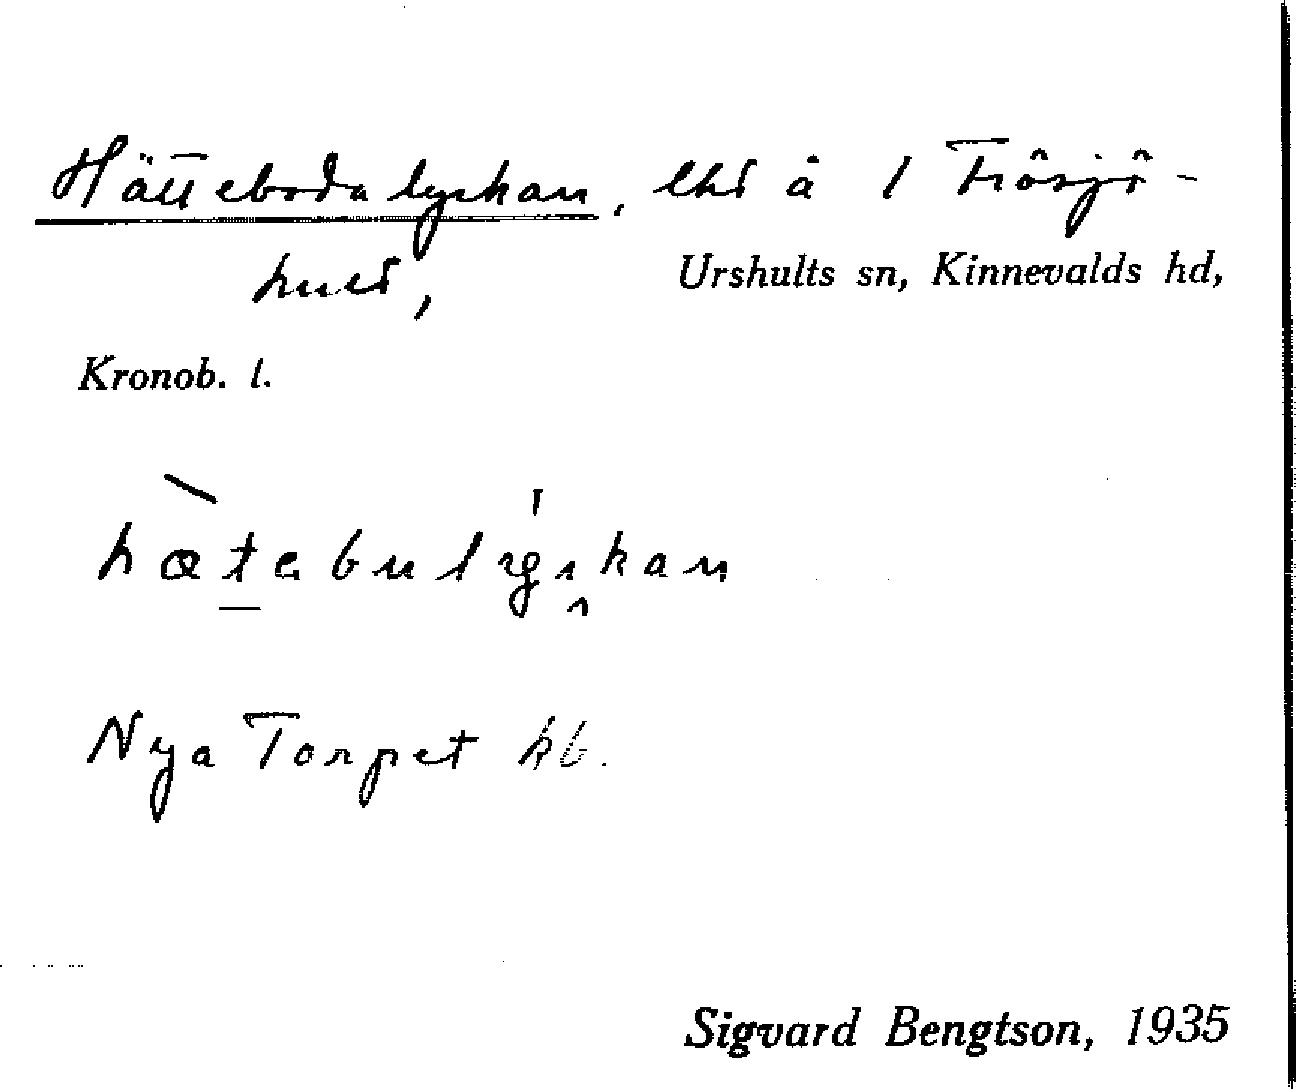 Hätteboda lyckan, lhd å 1 Trösjö-
hult,
Urshults sn, Kinnevalds hd,
Kronob. l.
Nya Torpet kb.
Sigvard Bengtson, 1935